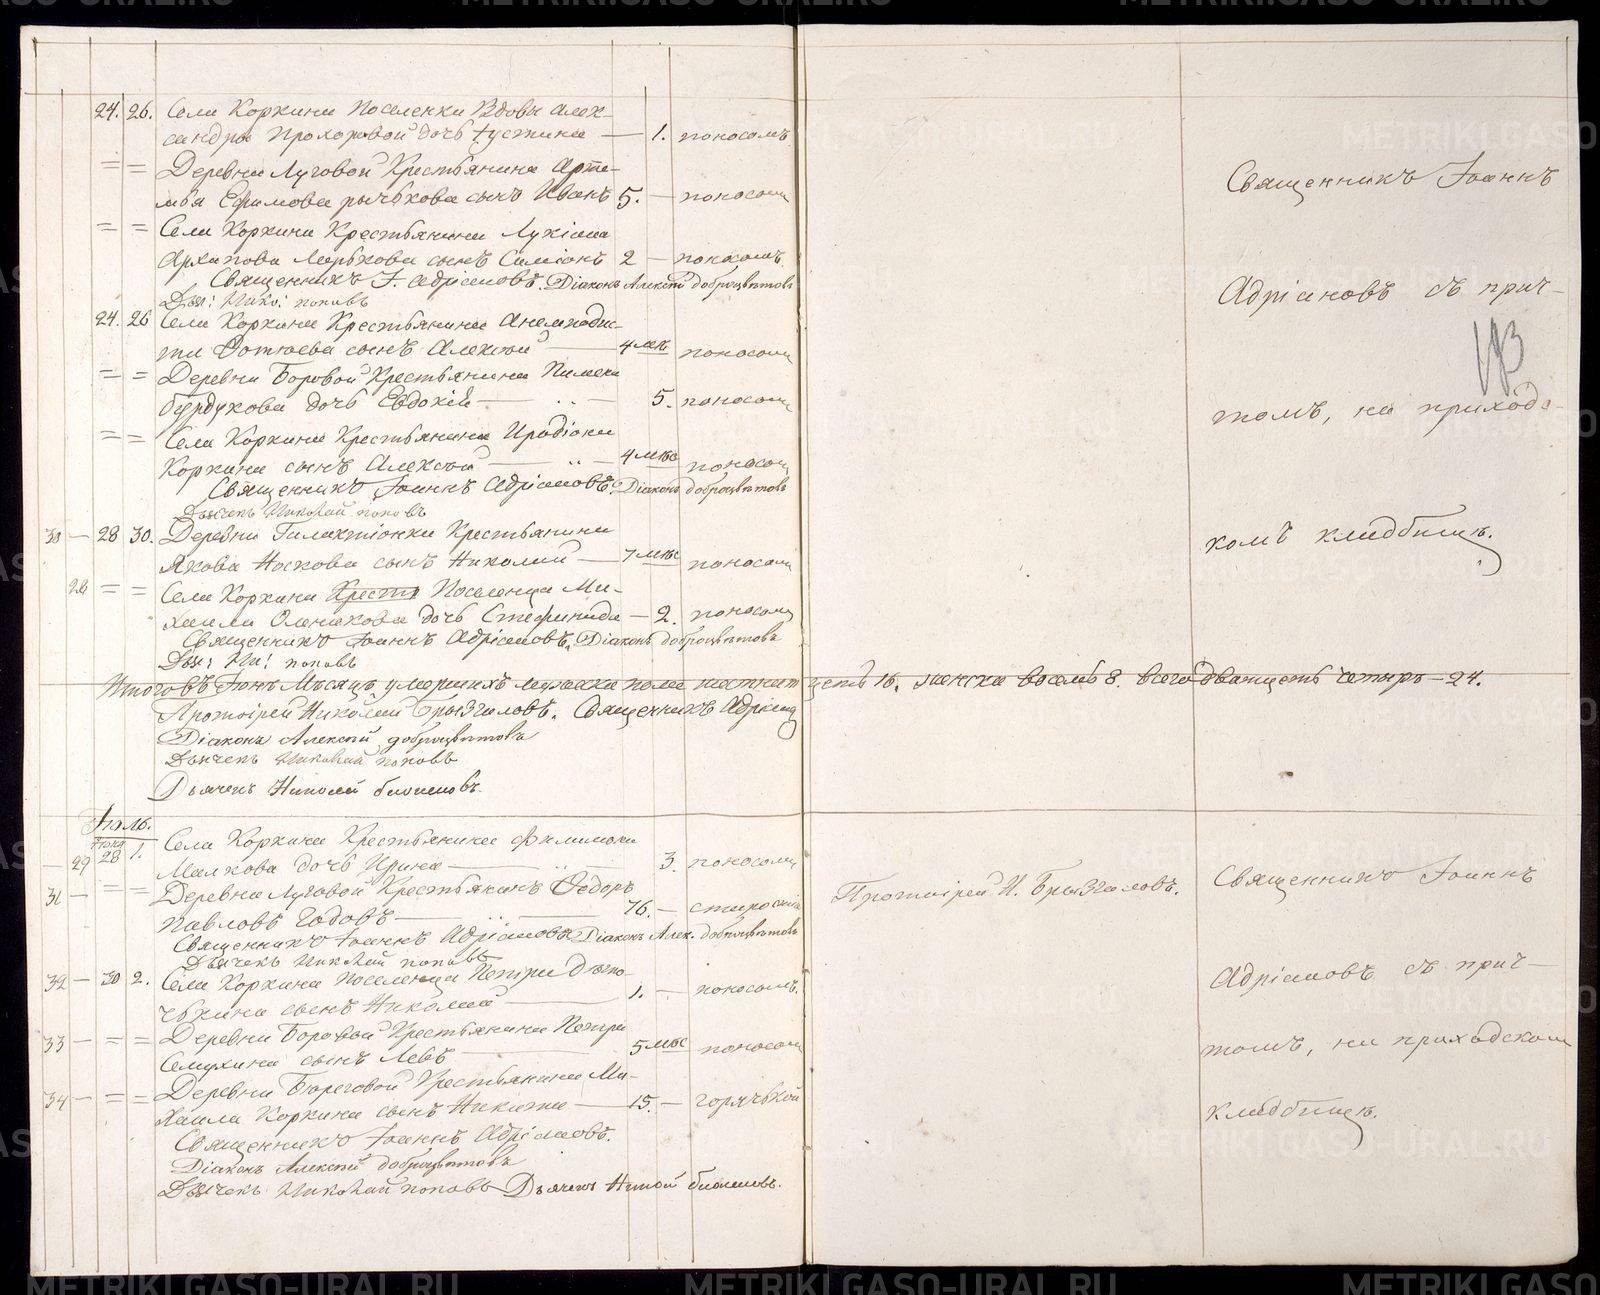 24. 26. Села Коркина Поселенки Вдовы Алек-
сандры Прохоровой дочь Иустина — 1. поносомъ
= = Деревни Луговой Крестьянина Арте-
мья Ефимова рычкова сынъ Иванъ 5. — поносомъ
= = Села Коркина Крестьянина Лукіана
Архипова сынъ Симіонъ 2 — поносомъ
Священникъ І. Адріановъ. Діаконъ Алексѣй доброцвѣтовъ
Дьяч: Нико: поповъ
24. 26 Села Коркина Крестьянина
сынъ Алексѣй — 4 мѣс поносомъ
= = Деревни Боровой Крестьянина Пимена
бурдукова дочь Евдокія — 5. поносомъ
= = Села Коркина Крестьянина Иродіона
Коркина сынъ Алексѣй — 4 мѣс поносомъ
Священникъ Іоаннъ Адріановъ. Діаконъ доброцвѣтовъ
Дьячекъ Николай поповъ
30 — 28 30. Деревни Галактіонки Крестьянина
Якова Носкова сынъ Николай — 7 мѣс поносомъ
28 = = Села Коркина Крестья Поселенца Ми-
хаила дочь Стефанида — 2. поносомъ
Священникъ Іоаннъ Адріановъ. Діаконъ доброцвѣтовъ
Дьяч: Ни: поповъ
Итого въ Іюнѣ Мѣсяцѣ умершихъ мужеска пола шестнатцеть 16. женска восемь 8. всего дватцеть четыре — 24.
Протоіерей Николай Брызгаловъ. Священникъ
Діаконъ Алексѣй доброцвѣтовъ
Дьячекъ Николай поповъ
Дьячекъ Николай
Іюль.
Іюня
29 28 1. Села Коркина Крестьянина Филимона
Малкова дочь Ирина — 3. поносомъ
31 — = = Деревни Луговой Крестьянинъ Ѳедоръ
Павловъ — 76. — старостію
Священникъ Іоаннъ Адріановъ Діаконъ Алек. доброцвѣтовъ
Дьячекъ Николай поповъ
32 — 30 2. Села Коркина Поселенца Петра
сынъ Николай — 1. — поносомъ.
33 — = = Деревни Боровой Крестьянина Петра
Семухина сынъ Левъ — 5 мѣс поносомъ
34 — = = Деревни Береговой Крестьянина Ми-
хаила Коркина сынъ Никита — 15. — горячькой
Священникъ Іоаннъ Адріановъ.
Діаконъ Алексѣй доброцвѣтовъ
Дьячекъ Николай поповъ Дьячекъ
Священникъ Іоаннъ
Адріановъ съ прич-
193
томъ, на приходс-
комъ кладбищѣ.
Протоіерей Н. Брызгаловъ.
Священникъ Іоаннъ
Адріановъ съ прич-
томъ, на приходскомъ
кладбищѣ.
METRIKI.GASO-URAL.RU